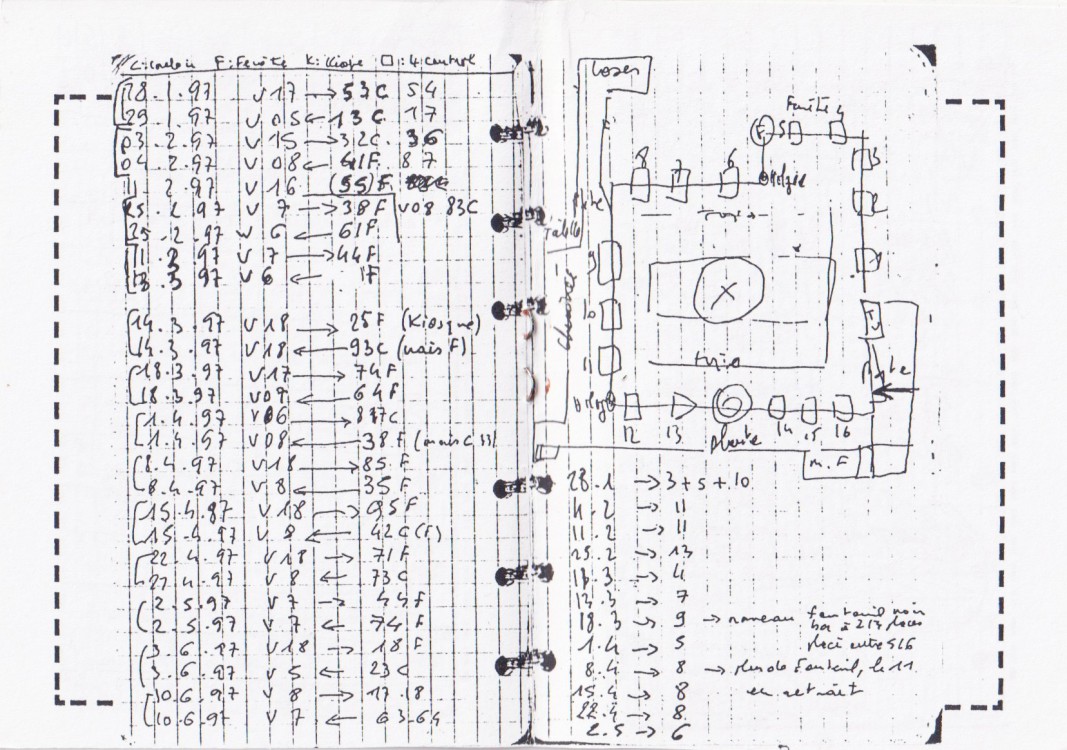 F: Fenêtre K: Kiosque □: 4 central
28.1.97 V 17 → 53C 54
29.1.97 V 05 ← 13 C 17
03.2.97 V 15 → 32C. 36
04.2.97 V 08 ← 41F. 87
11.2.97 V 16 (55) F
25.2.97 V 7 → 38F V08 83C
25.2.97 V 6 ← 61F
11 2 97 V 7 → 44F
13.3 97 V 6 ←
14.3.97 V 18 → 25F (Kiosque)
14.3.97 V 18 ← 93C (mais F)
18.3.97 V 17 → 74F
18.3.97 V 09 ← 64F
1.4.97 V 06 → 87C
1.4.97 V 08 ← 38F (mais C 33)
8.4.97 V 18 → 85 F
8.4.97 V 8 ← 35 F
15.4.97 V 18 → 95 F
15.4.97 V 8 ← 42C (F)
22.4.97 V 18 → 71 F
22.4.97 V 8 ← 73C
2.5.97 V 7 → 44 F
2.5.97 V 7 ← 74 F
3.6.97 V 18 → 18 F
3.6.97 V 5 ← 23C
10.6.97 V 8 → 17.18
10.6.97 V 7 ← 63.64
Fenêtre 4
F 5
3
8 7 6
2
table
9
1
X
10
TV
11
Porte
12 13 plante 14 15 16
M.F
28.1 → 3 + 5 + 10
4.2 → 11
11.2 → 11
25.2 → 13
11.3 → 4
14.3 → 7
18.3 → 9 → nouveau fauteuil noir
bas à 2 places
placé entre 5 & 6
1.4 → 5
8.4 → 8 → plus de fauteuil, le 11
en retrait
15.4 → 8
22.4 → 8
2.5 → 6